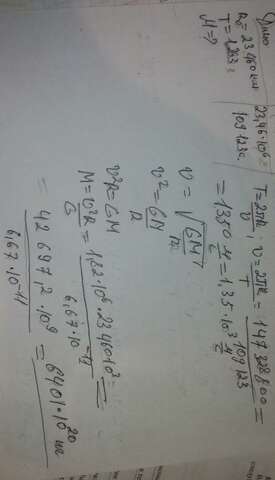 Дано
R = 23 460 км
T = 1,263 с
M = ?
23,46·10⁶
109123 с
T = 2πR/v ; v = 2πR/T = 147 328 800/109 123 =
= 1350 м/с = 1,35·10³ м/с
v = √(GM/R)
v² = GM/R
v²R = GM
M = v²R/G = 1,82·10⁶·23460·10³/6,67·10⁻¹¹ =
= 42 697,2·10⁹/6,67·10⁻¹¹ = 6401·10²⁰ кг